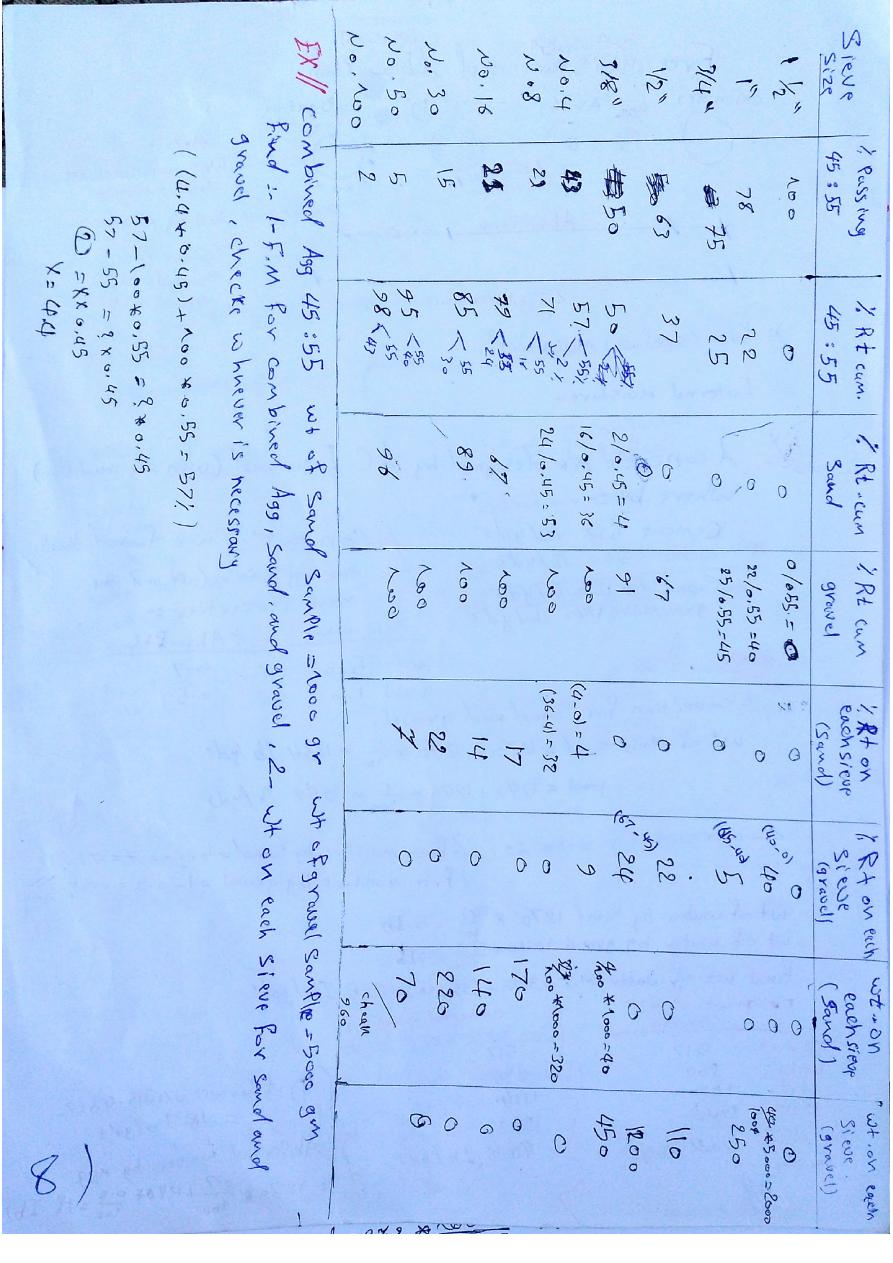 Sieve size | % Passing 45:55 | % Rt cum. 45:55 | % Rt.cum Sand | % Rt cum gravel | % Rt on each sieve (Sand) | % Rt on each sieve (gravel) | wt. on each sieve (Sand) | wt. on each sieve (gravel)
1 1/2" | 100 | 0 | 0 | 0/0.55 = 0 | 0 | 0 | 0 | 0
1" | 78 | 22 | 0 | 22/0.55 = 40 | 0 | (40-0) 40 | 0 | 40/100 * 5000 = 2000
3/4" | 75 | 25 | 0 | 25/0.55 = 45 | 0 | (45-40) 5 | 0 | 250
1/2" | 63 | 37 | 0 | 67 | 0 | 22 | 0 | 110
3/8" | 50 | 50 | 2/0.45 = 4 | 91 | 0 | (67-45) 24 | 0 | 1200
No.4 | 43 | 57 < 55% 2% | 16/0.45 = 36 | 100 | (4-0) = 4 | 9 | 4/100 * 1000 = 40 | 450
No.8 | 29 | 71 < 55 16 | 24/0.45 = 53 | 100 | (36-4) = 32 | 0 | 32/100 * 1000 = 320 | 0
No.16 | 21 | 79 < 55 24 | 67 | 100 | 17 | 0 | 170 | 0
No.30 | 15 | 85 < 55 30 | 89 | 100 | 14 | 0 | 140 | 0
No.50 | 5 | 95 < 55 40 | 96 | 100 | 22 | 0 | 220 | 0
No.100 | 2 | 98 < 55 43 | 100 | 7 | 0 | 70 | 0
check 960
EX// Combined Agg 45:55 wt of Sand Sample = 1000 gr wt of gravel Sample = 5000 gm
find :- 1- F.M for combined Agg, Sand, and gravel, 2- wt on each Sieve for sand and
gravel, checke whnever is necessary
((4.4 * 0.45) + 100 * 0.55 = 57%)
57 - 100 * 0.55 = ? * 0.45
57 - 55 = ? x 0.45
② = X x 0.45
X = 4.4
8